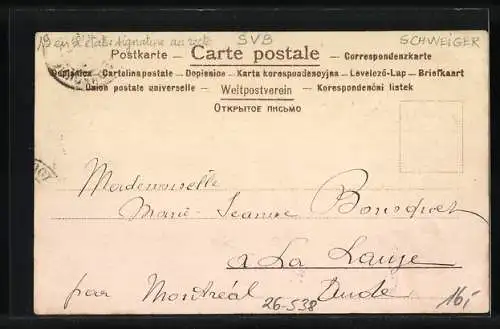 SVB
SCHWEIGER
Postkarte – Carte postale – Correspondenzkarte
Dopisnice – Cartolina postale – Dopisnice – Karta korespondencyjna – Levelező-Lap – Briefkaart
Union postale universelle – Weltpostverein – Korespondenční listek
Открытое письмо
Mademoiselle
Marie-Jeanne Bousquet
à La Lauze
par Montréal Aude
26-538
16,-